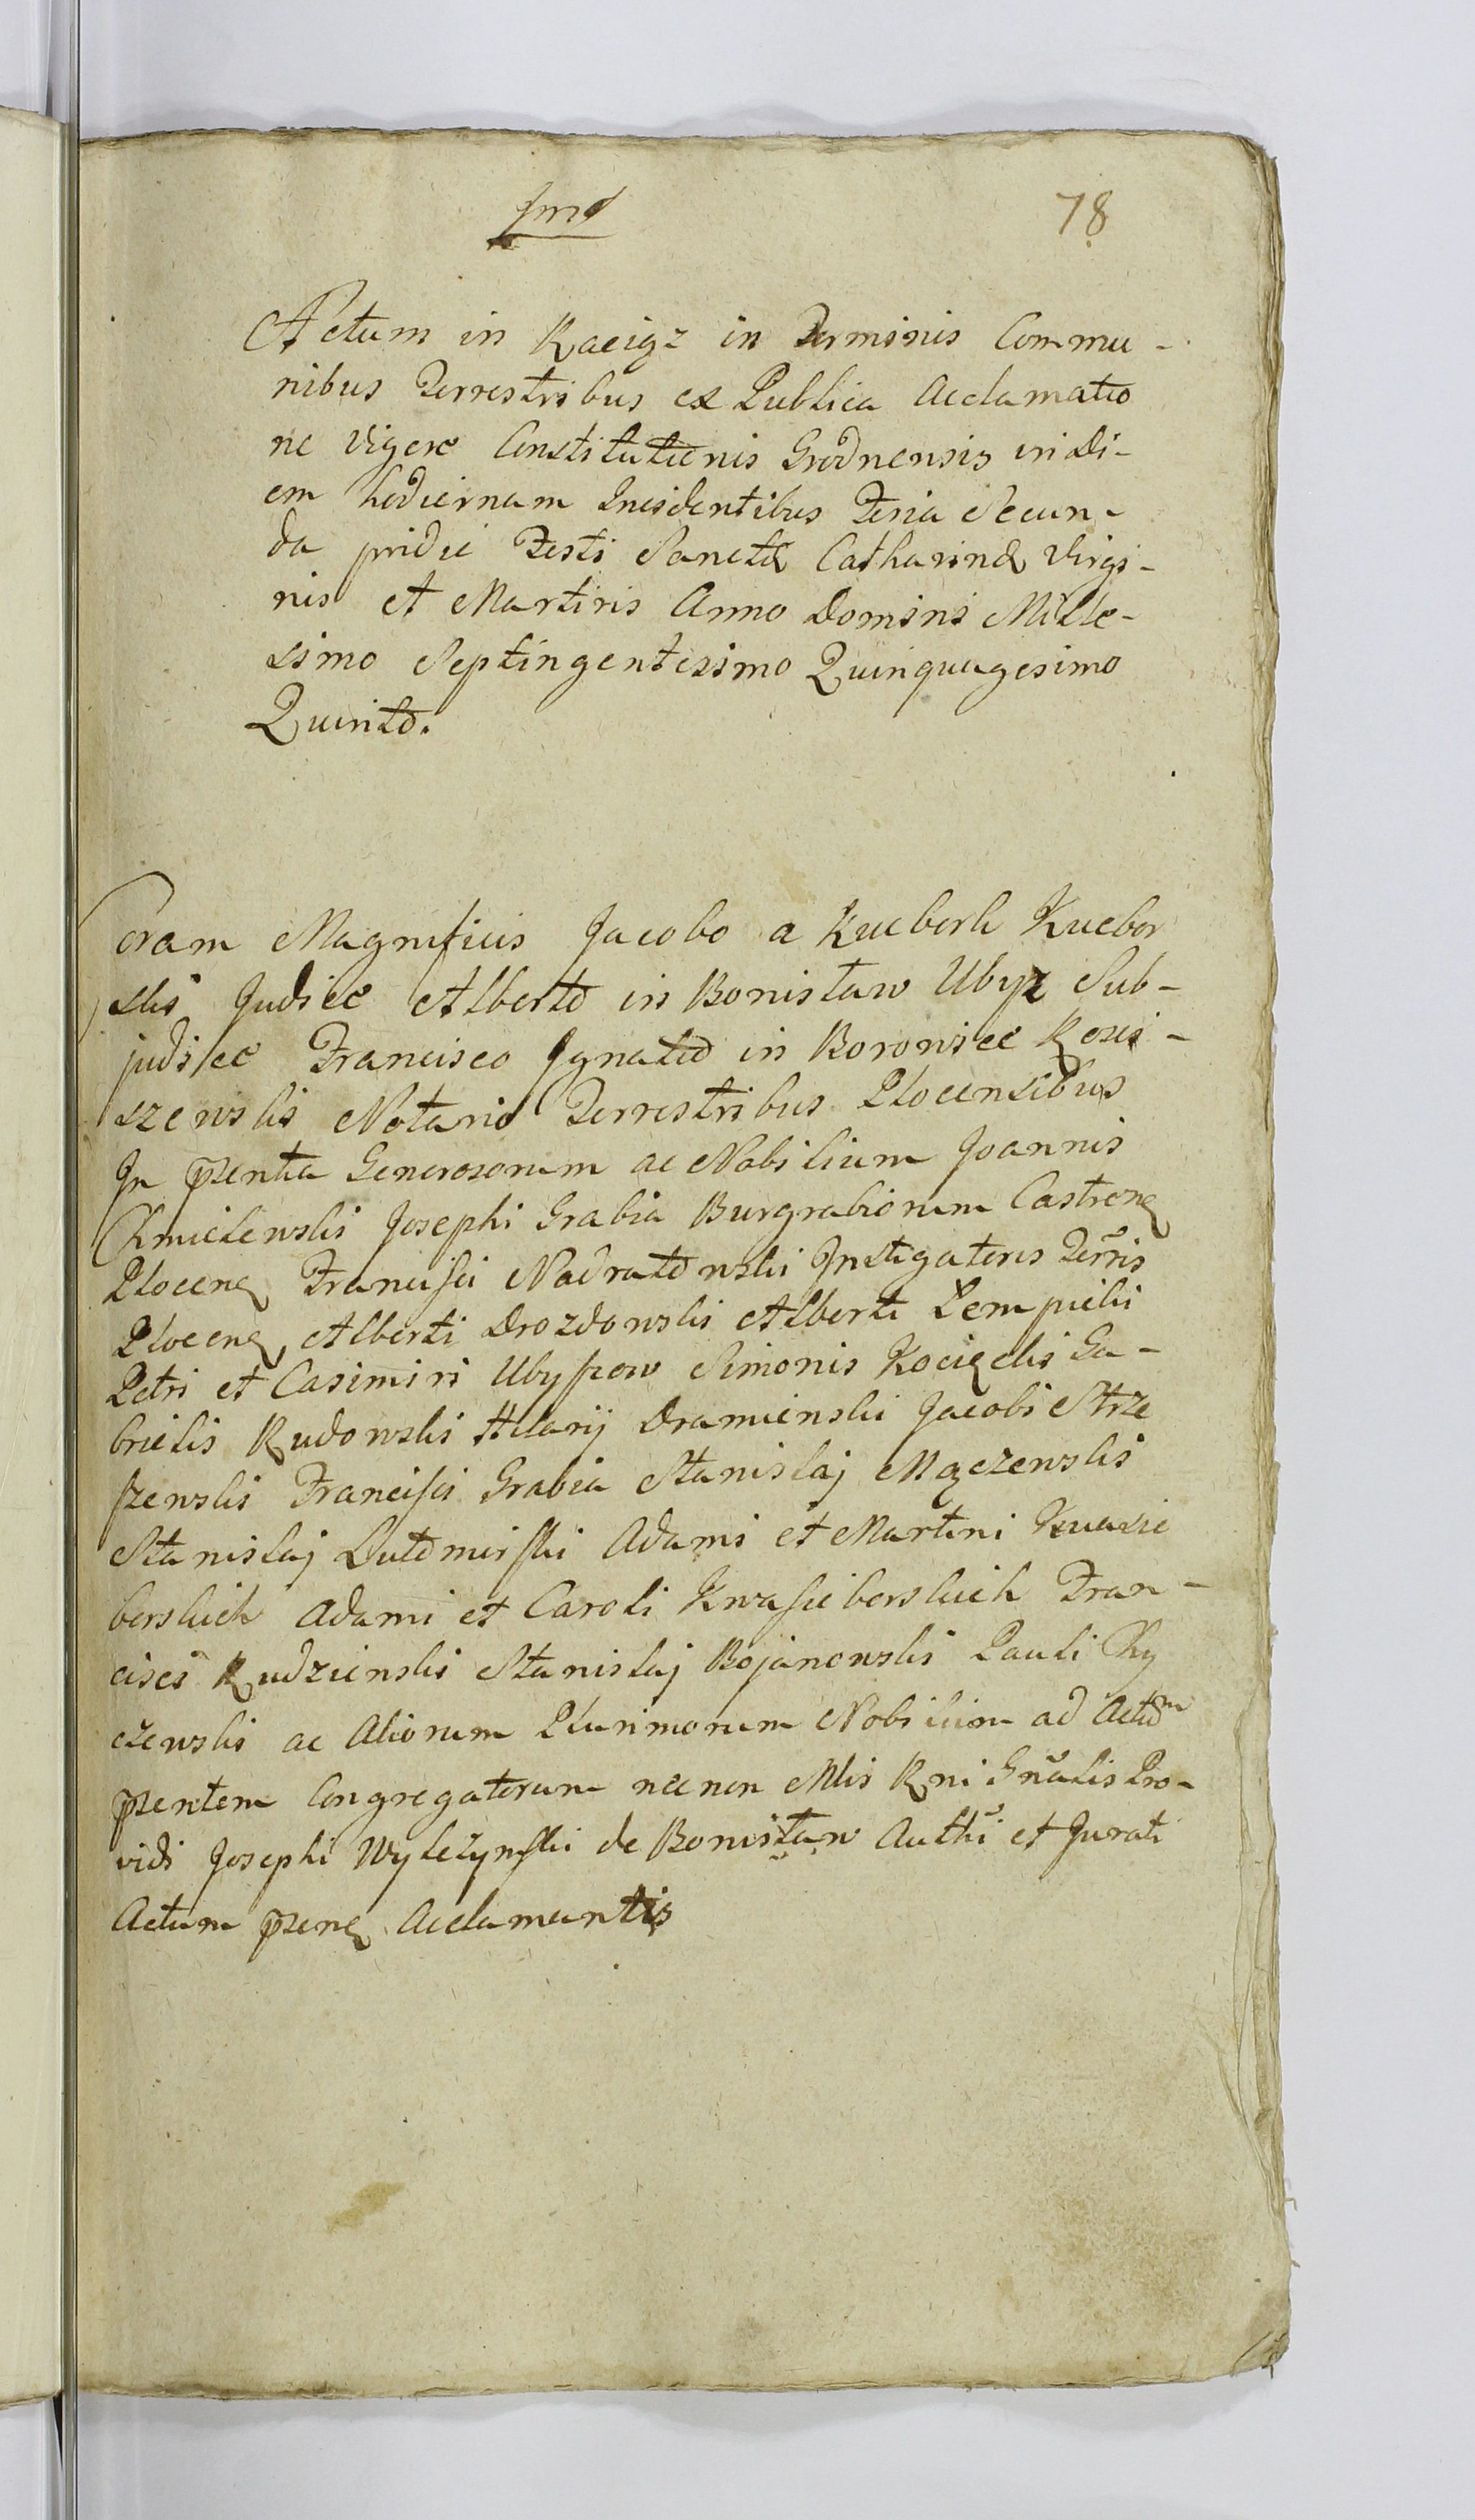 78
Actum in Raciąz in Terminis Commu-
nibus Terrestribus ex Publica Acclamatio
ne Vigore Constitutionis Grodnensis in di-
em hodiernam Incidentibus Feria Secun-
da pridie Festi Sanctæ Catharinæ Virgi-
nis et Martiris Anno Domini Mille-
simo Septingentesimo Quinquagesimo
Quinto.
Coram Magnificis Jacobo a Kucbork Kucbor
ski Judice Alberto in Bonisław Ubysz Sub-
judice Francisco Ignatio in Borowice Rosci-
szewski Notario Terrestribus Plocensibus
In pzentia Generosorum ac Nobilium Joannis
Chmielewski Josephi Grabia Burgrabiorum Castrenę
Plocenę Francisci Nadratowski Instigatoris Terris
Plocenę, Alberti Drozdowski Alberti Lempicki
Petri et Casimiri Ubyszow Simonis Kocięcki Ga-
brielis Rudowski Hilarij Dramienski Jacobi Strze
szewski Francisci Grabia Stanislaj Mączewski
Stanislaj Lutomirski Adami et Martini Kwasie
borskich Adami et Caroli Kwasieborskich Fran-
cisci Rudzienski Stanislaj Bojanowski Pauli Chy
czewski ac Aliorum Plurimorum Nobilium ad Actum
pzentem Congregatorum nec non Mlis Rni Gnalis Pro-
vidi Josephi Wylezynski de Bonisław Authi et Jurati
Actum pzenę Acclamantis